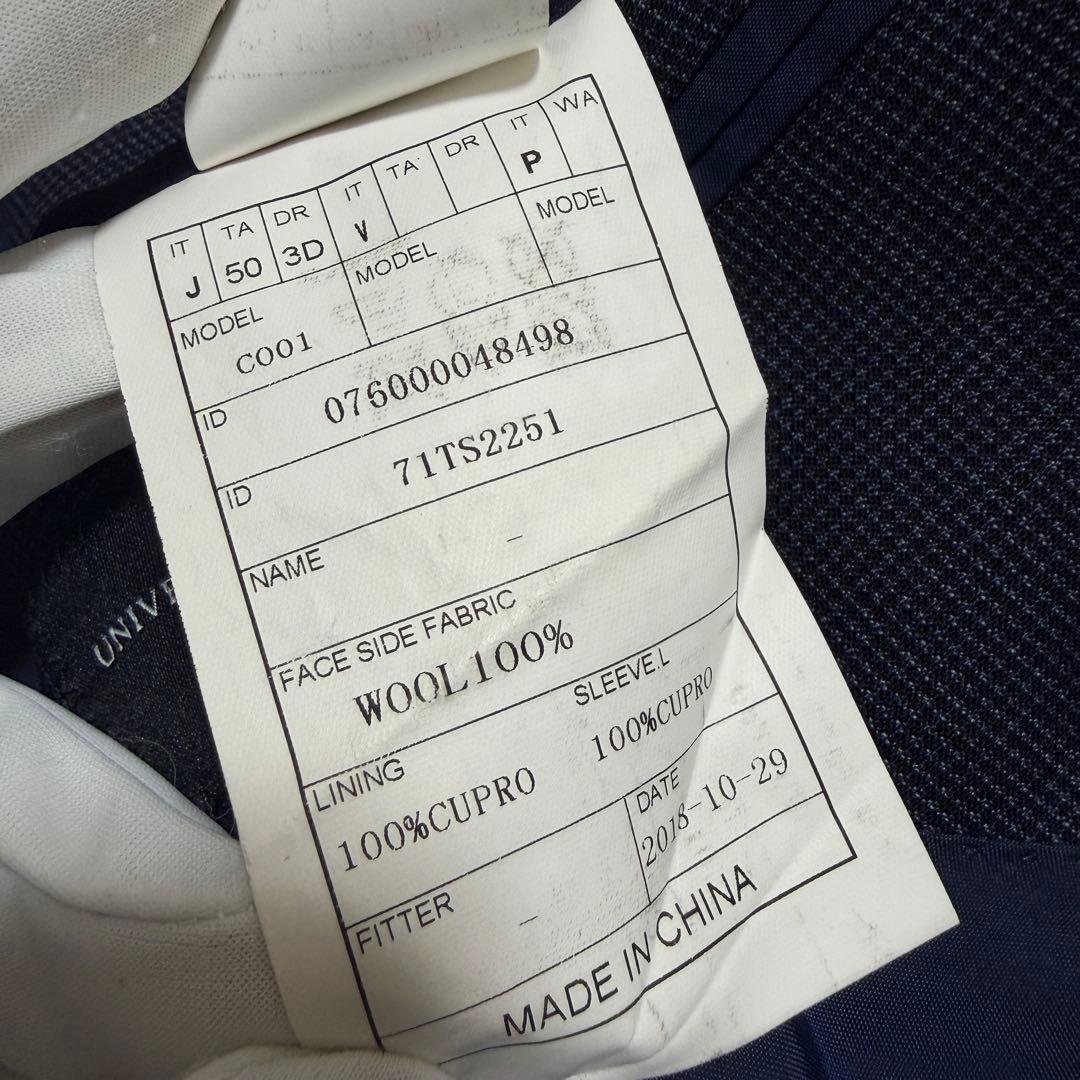 IT TA DR IT TA DR IT WA
J 50 3D V P
MODEL MODEL MODEL
C001
ID 076000048498
ID 71TS2251
NAME -
FACE SIDE FABRIC
WOOL100%
LINING SLEEVE.L
100%CUPRO 100%CUPRO
FITTER - DATE
2018-10-29
MADE IN CHINA
UNIVE